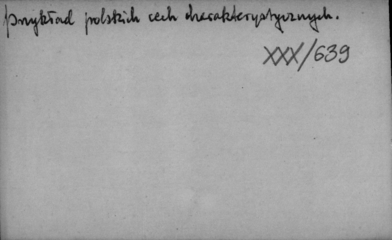 przykład polskich cech charakterystycznych.
XXX/639